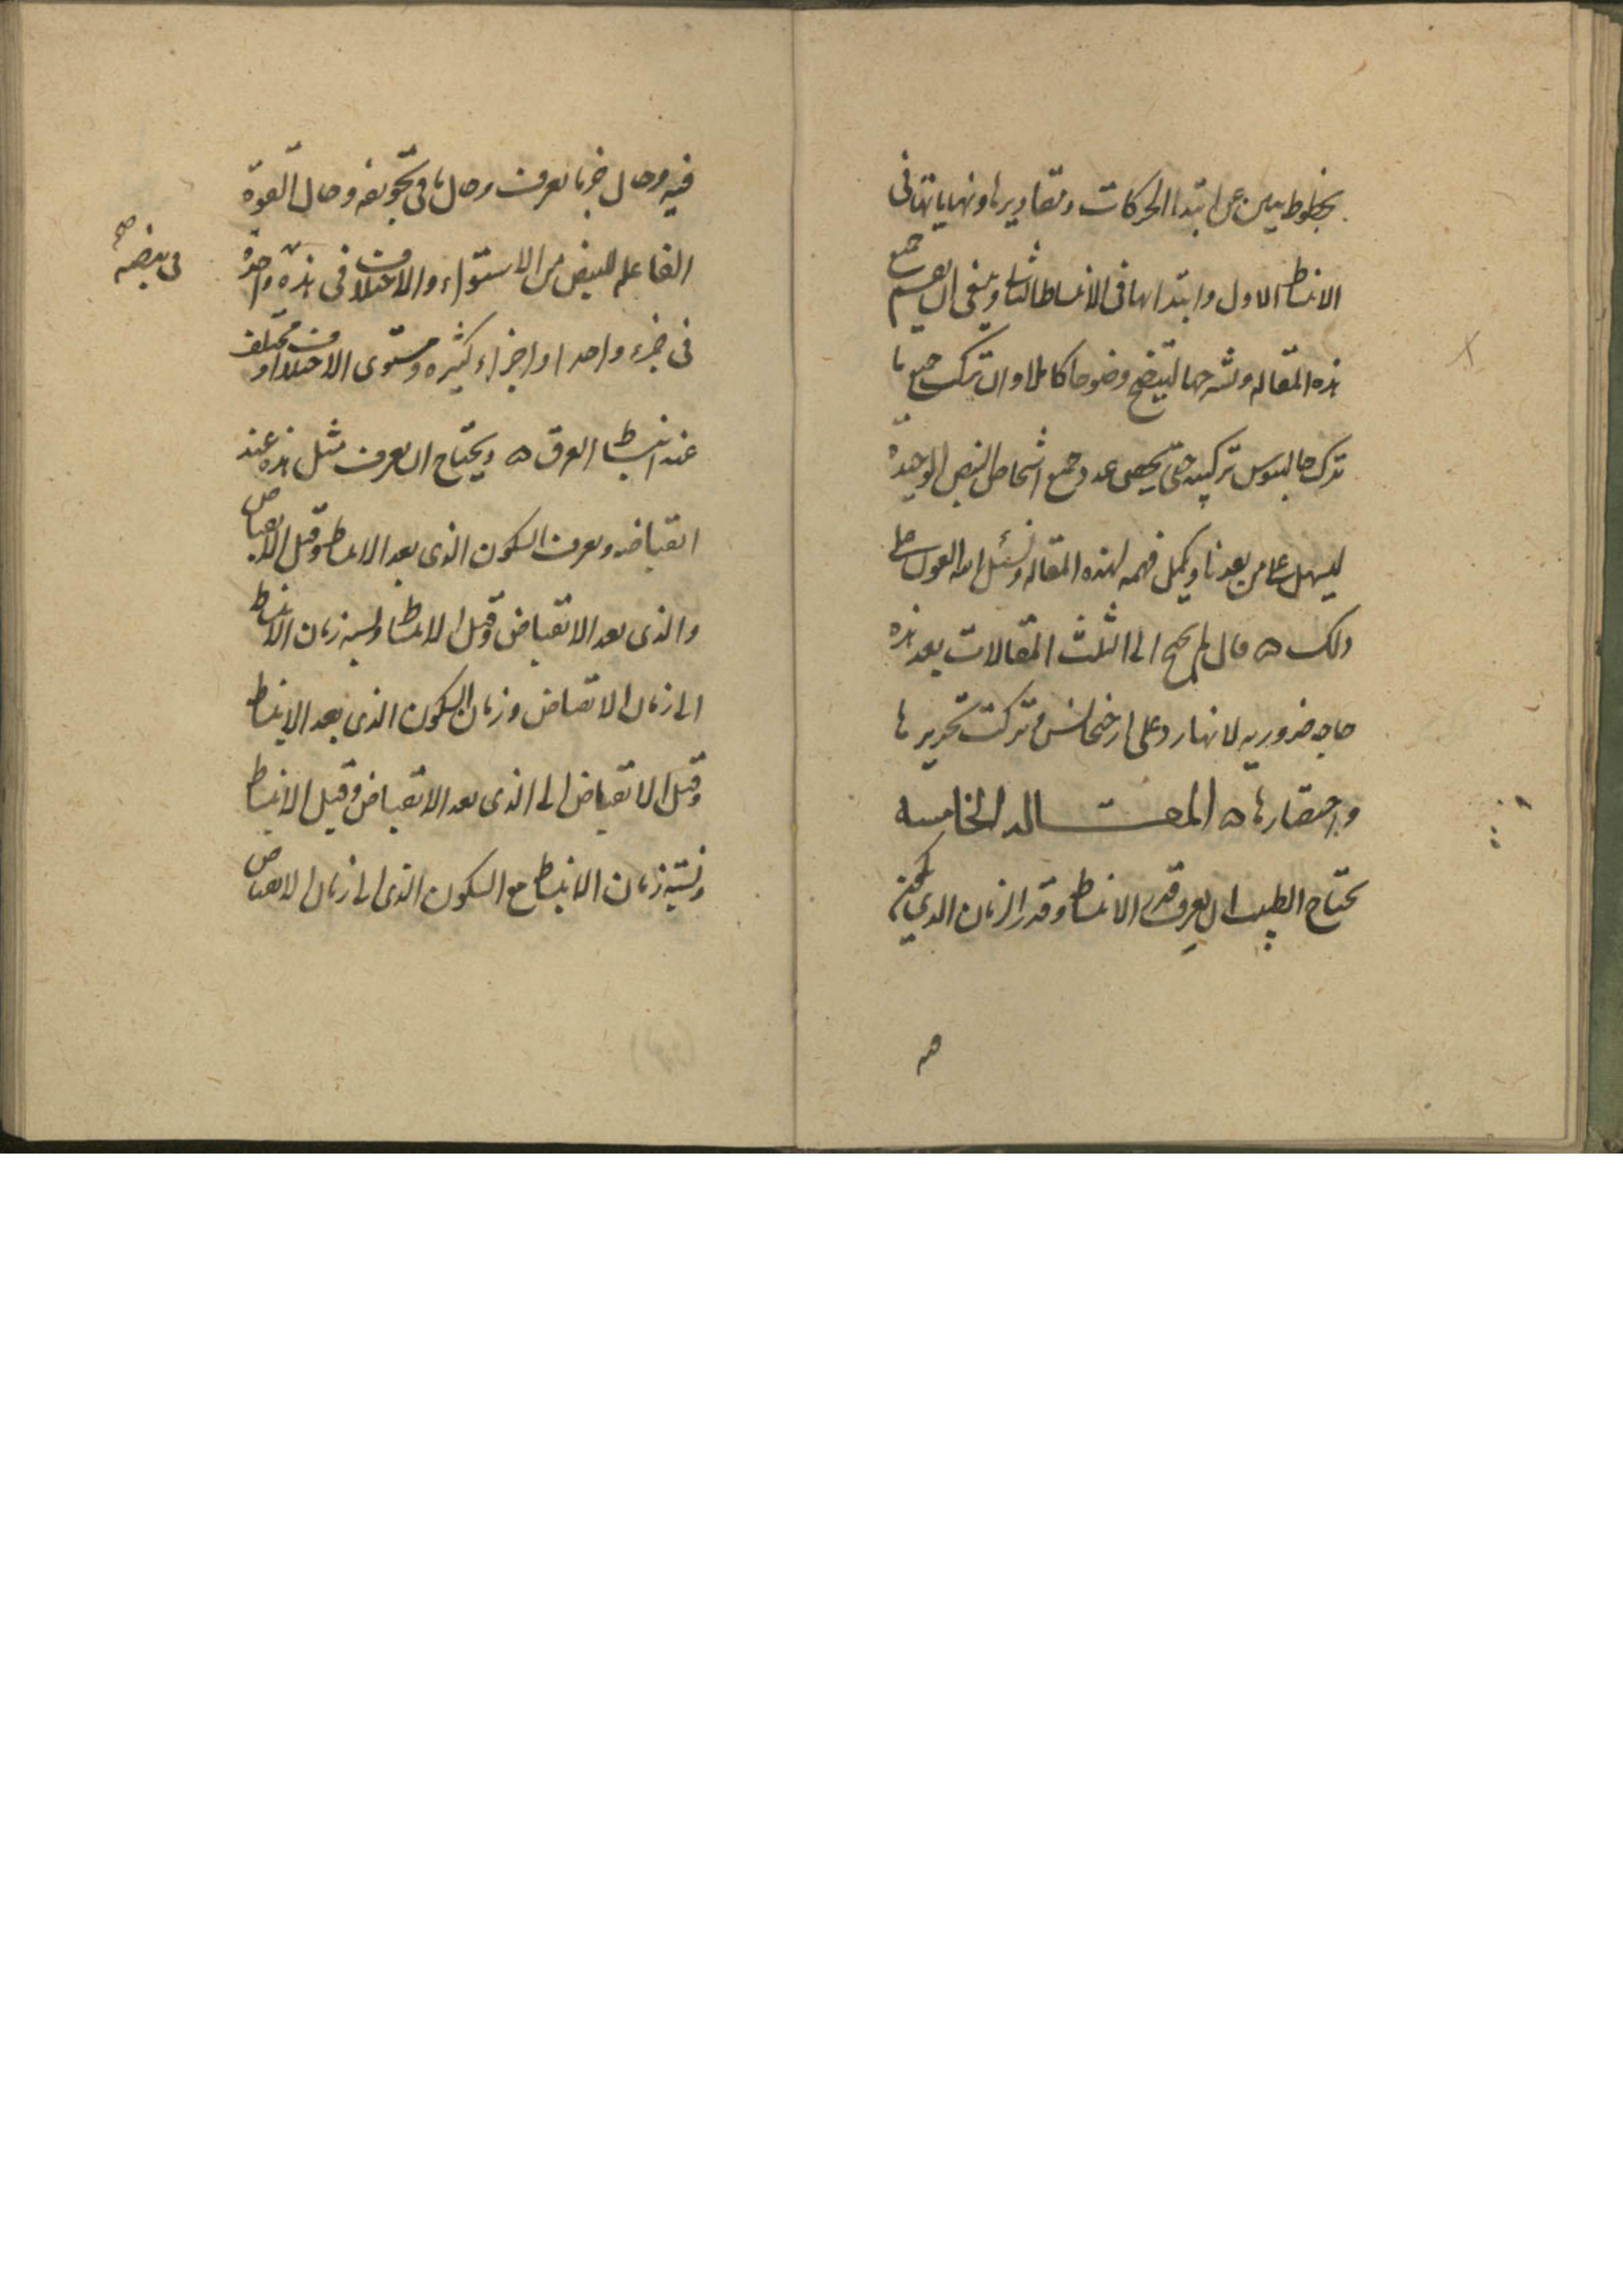 بخطوط يبين عن ابتدا الحركات ومقاديرها ونهاياتها فى
الانبساط الاول وابتدائها فى الانبساط الثانى وينبغى ان نعمم جميع
هذه المقاله ونشرحها ليتضح وضوحا كاملا وان نركب جميع ما
ترك جالينوس تركيبه حتى يحصى عدد جميع اشخاص النبض الوحيدة
ليسهل على من بعدنا ويكمل فهمه لهذه المقاله ونسئل الله العون على
ذلك ه قال لم يحتج الى الثلث المقالات بعد هذه
حاجه ضروريه لانها رد على ارخيجانس فتركت تحريرها
واختصارها ه المقــــاله الخامسه
يحتاج الطبيب ان يعرف قدر الانبساط وقدر الزمان الذى يكون
فيه وحال جرمه ما يعرف وحال ما فى تجويفه وحال القوة
الفاعله للنبض من الاستواء والاختلاف فى هذه واحدة
فى نبضه صح
فى جزء واحد او اجزاء كثيره ومستوى الاختلاف او مختلف
عند انبساط العرق ه ويحتاج ان يعرف مثل هذه عند
انقباضه ويعرف السكون الذى بعد الانبساط وقبل الانقباض
والذى بعد الانقباض وقبل الانبساط ونسبه زمان الانبساط
الى زمان الانقباض وزمان السكون الذى بعد الانبساط
وقبل الانقباض الى الذى بعد الانقباض وقبل الانبساط
ونسبة زمان الانبساط مع السكون الذى الى زمان الانقباض